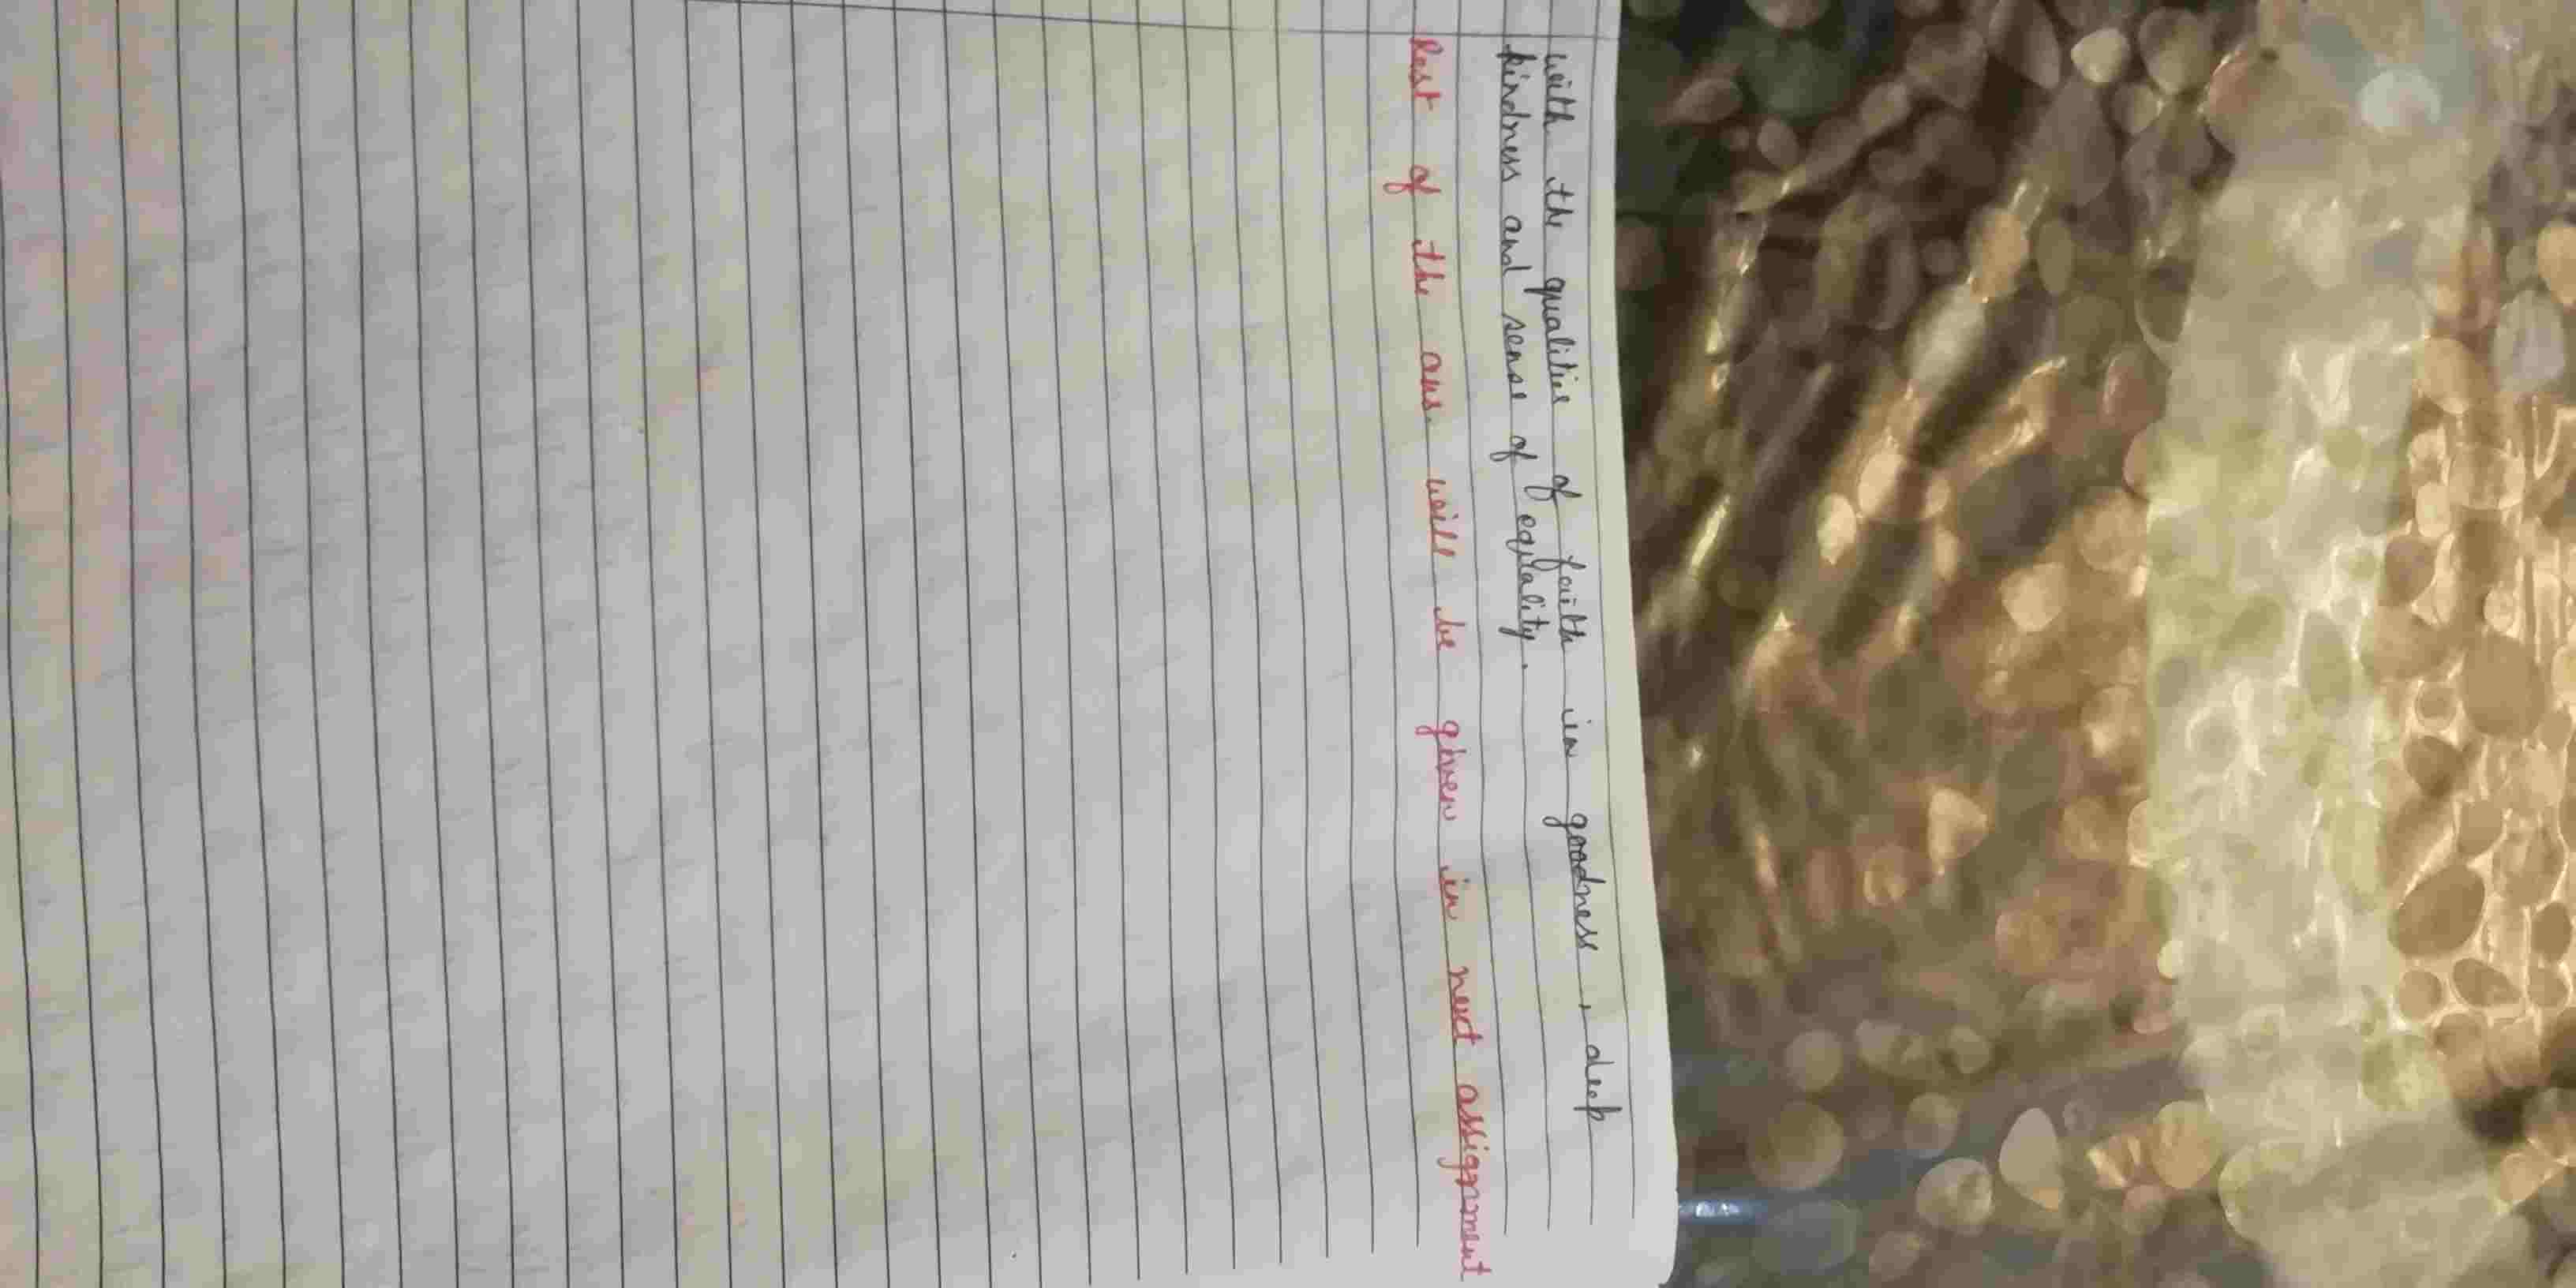 with the qualities of faith in goodness, deep
kindness and sense of equality.
Rest of the ans. will be given in next assignment